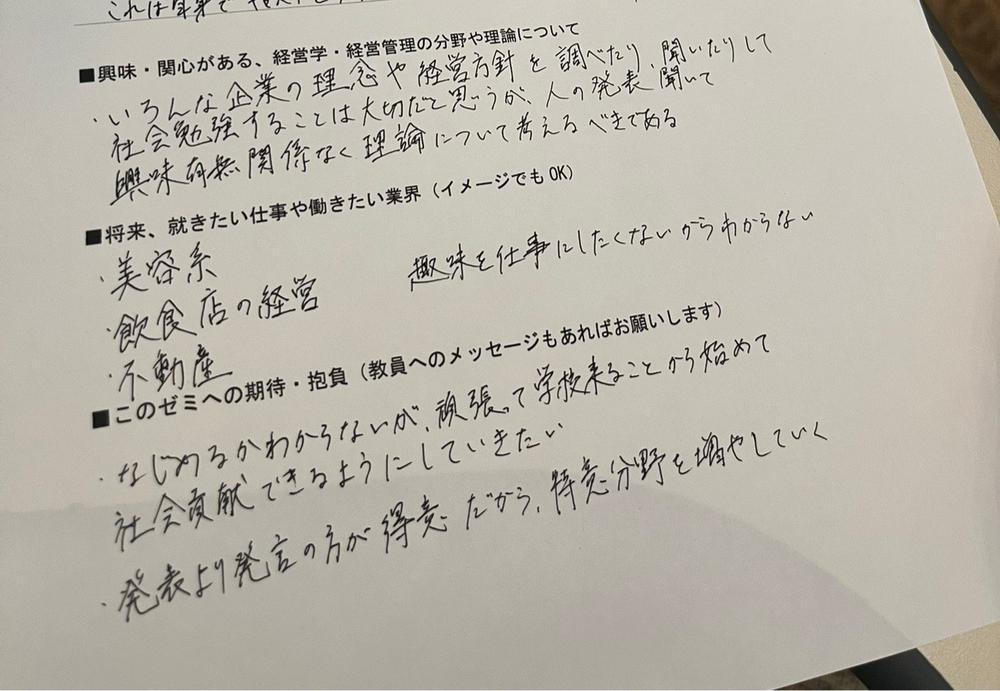 これは
■興味・関心がある、経営学・経営管理の分野や理論について
・いろんな企業の理念や経営方針を調べたり、聞いたりして
社会勉強することは大切だと思うが、人の発表聞いて
興味有無関係なく理論について考えるべきである
■将来、就きたい仕事や働きたい業界（イメージでもOK）
・美容系
・飲食店の経営　趣味を仕事にしたくないからわからない
・不動産
■このゼミへの期待・抱負（教員へのメッセージもあればお願いします）
・なじめるかわからないが、頑張って学校来ることから始めて
社会貢献できるようにしていきたい
・発表より発言の方が得意だから、得意分野を増やしていく